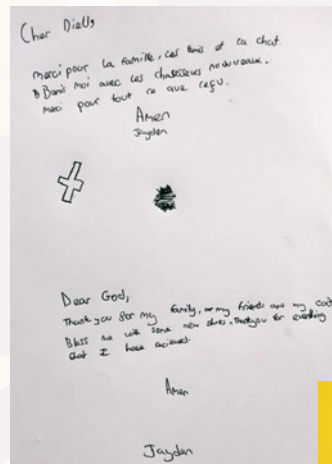 Cher Dieu,
merci pour la famille, ces amis et ca chat.
Benis moi avec ces chausseurs nouveaux.
merci pour tout ce que reçu.
Amen
Jayden
Dear God,
Thank you for my family, my friends and my cat
Bless me with some new shoes. Thankyou for everything
that I have recieved
Amen
Jayden